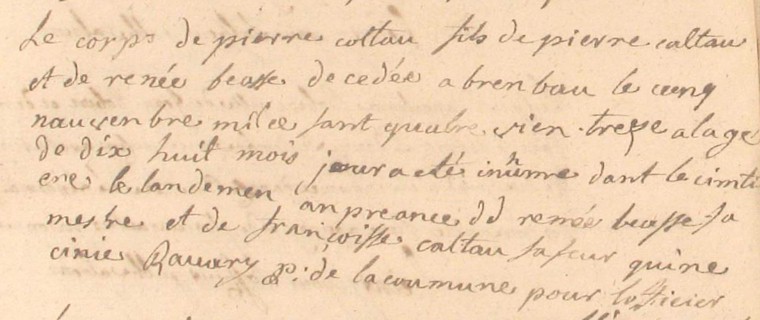 Le corps de pierre coltau fils de pierre caltau
et de renée beasse decedée a brenbau le cenq
nauvenbre mil ce sant quatre vien treze a la ge
de dix huit mois jour a eté inümre dant le cimti
ere le landemen an preance dd renée beasse sa
mes re et de françoisse caltau sa seur qui ne
cinie Ravary p. de la coumune pour lofficier